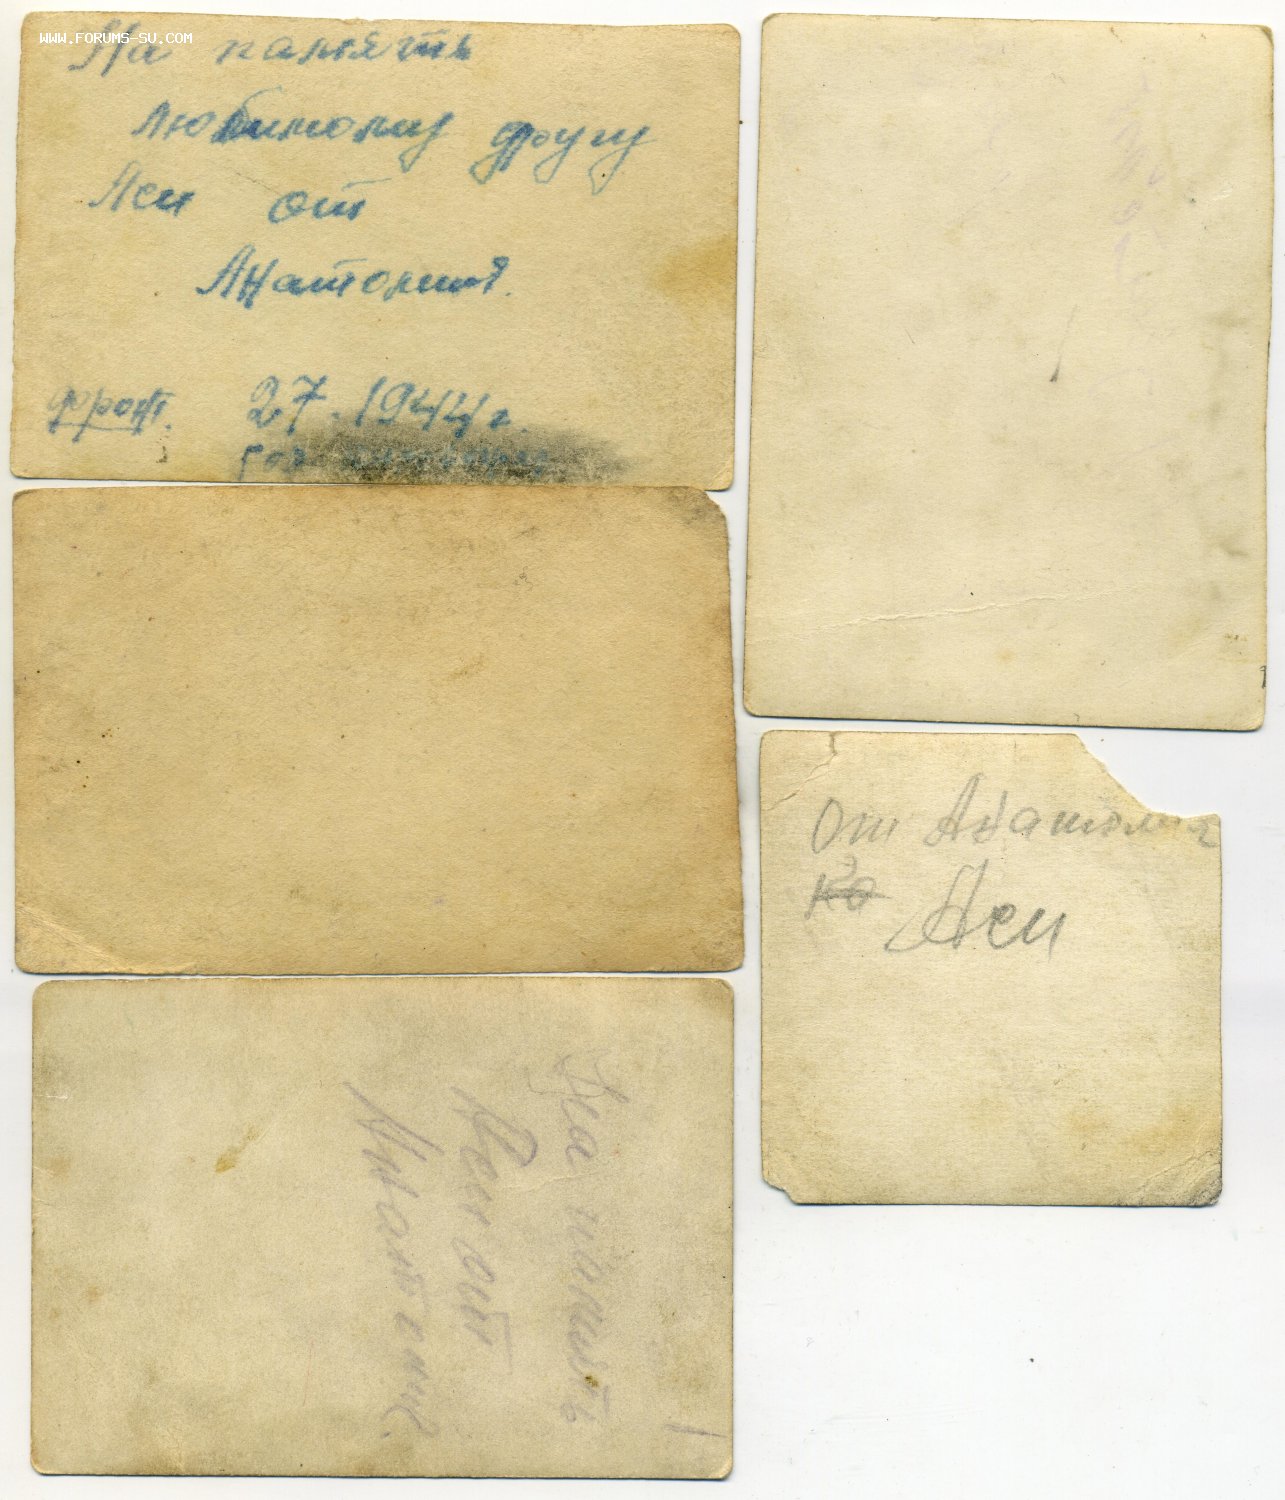 WWW.FORUMS-SU.COM
На память
любимому другу
Аси от
Анатолия.
фронт.
27.1944 г.
От Анатолия
ко
Аси
На память
Аси от
Анатолия.